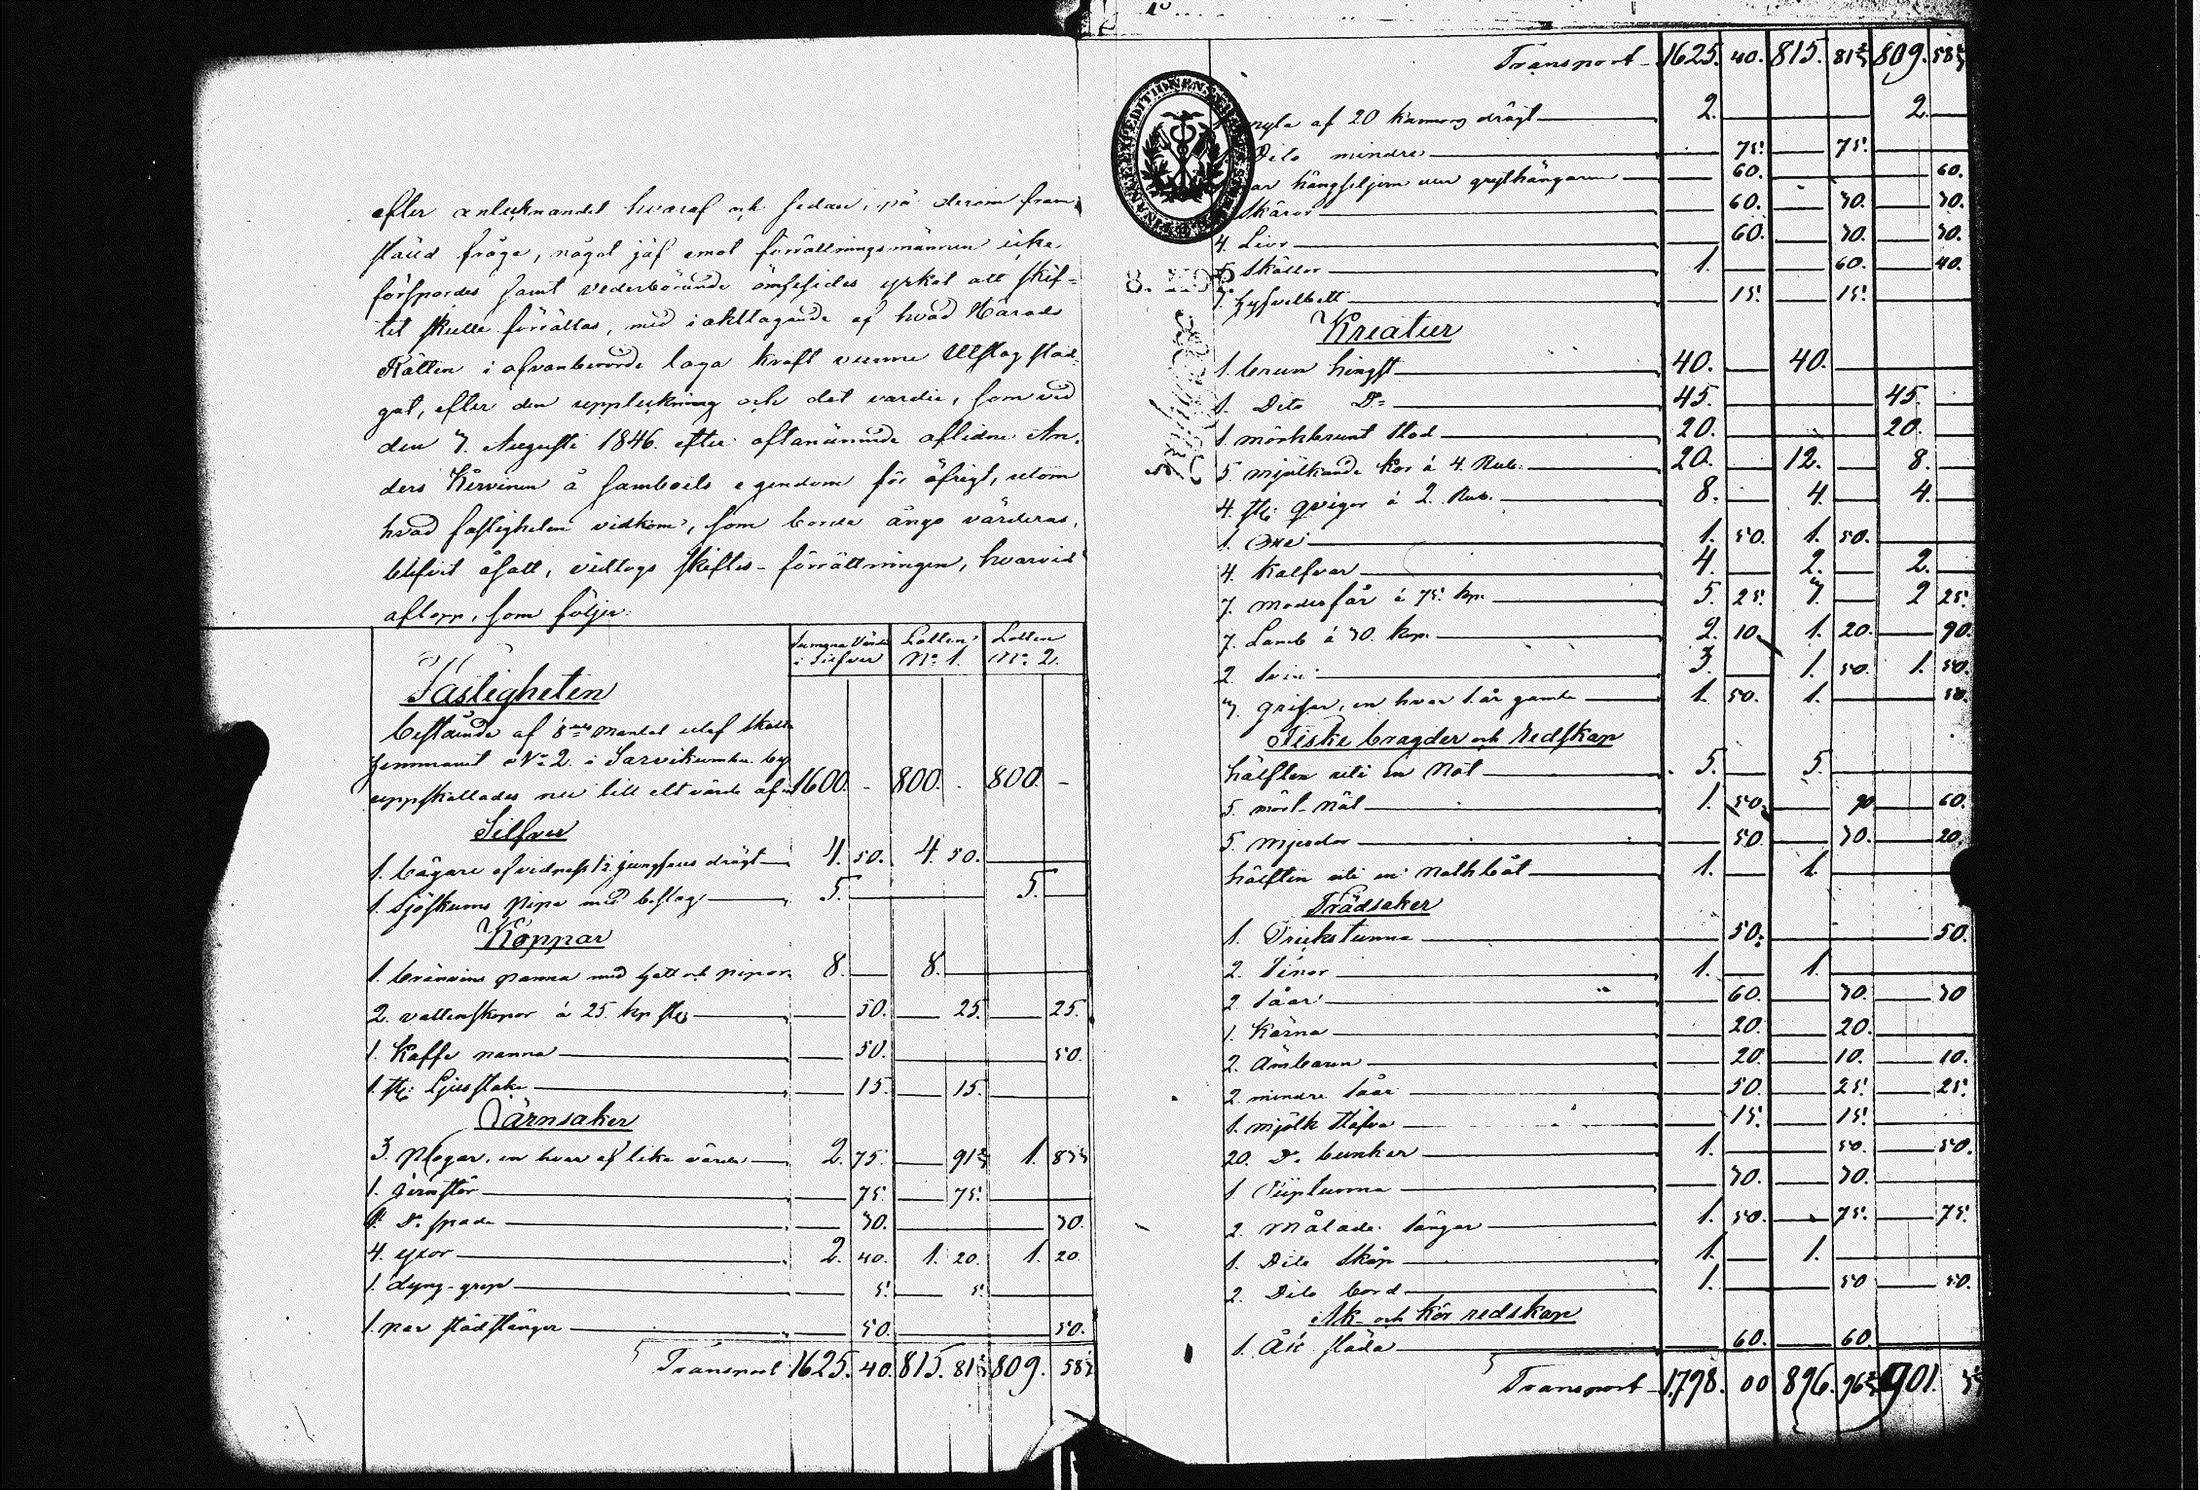 efter anteknandet hvaraf och sedan, på derom fram
stäld fråga, något jäf emot förrättningsmännen icke
förspordes samt vederbörande ömsesides yrkat att skif-
tet skulle förrättas, med iakttagande af hvad Härads
Rätten i ofvanberörde laga kraft vunne Utslag stad-
gat, efter den uppteckning och det värde, som vid
den 7. Augusti 1846. efter oftanämnde aflidne An-
ders Kervinen å samboets egendom för öfrigt, utom
hvad fastigheten vidkom, som borde ånyo värderas,
blifvit åsatt, vidtogs skiftes-förrättningen, hvarvid
aflopp, som följer:
Summa Värde i Silfver Lotten No 1. Lotten No 2.
Fastigheten
bestående af mantal utaf Skatte
hemmanet No 2. i Sarvikumbu by
uppskattades nu till ett värde af 1600. - 800. - 800. -
Silfver
1. bägare jungfrus drägt 4. 50. 4. 50.
1. Sjöskums pipa med beslag 5. 5.
Koppar
1. bränvins panna med hatt och pipor 8. 8.
2. vattenskopor á 25. kop st 50. 25. 25.
1. Kaffe panna 50. 50.
1. st: Ljusstake 15. 15.
Järnsaker
3. Plogar, en hvar af lika värde 2. 75. 91 2/3 1. 83 1/3
1. Jernstör 75. 75.
1. Do spade 30. 30.
4. yxor 2. 40. 1. 20. 1. 20.
1. dyng-grep 5. 5.
1. par stådstänger 50. 50.
Transport 1625. 40. 815. 81 2/3 809. 58 1/3
Transport 1625. 40. 815. 81 2/3 809. 58 1/3
af 20 kannors drägt 2. 2.
Dito mindre 75. 75.
60. 60.
Skäror 60. 30. 30.
4. Liar 60. 30. 30.
5 Skällor 1. 60. 40.
1. hyfvelbett 15. 15.
8. KOP.
Kreatur
1. brun hingst 40. 40.
1. Dito Do 45. 45.
1. mörkbrunt stod 20. 20.
5 mjölkande kor á 4. Rub. 20. 12. 8.
4. st: qvigor á 2. Rub. 8. 4. 4.
1. Oxe 1. 50. 1. 50.
4. Kalfvar 4. 2. 2.
7. moderfår á 75. kop. 5. 25. 3. 2 25.
7. Lamb á 30. kop. 2. 10. 1. 20. 90.
2. svin 3. 1. 50. 1. 50.
3. grisar, en hvar 1. år gamla 1. 50. 1. 50.
Fiske bragder och redskap
hälften uti en Not 5. 5.
5. mört-nät 1. 50. 90 60.
5. mjerdor 50. 30. 20.
hälften uti en Nothbåt 1. 1.
Trädsaker
1. Drickstunna 50. 50.
2. Tinor 1. 1.
2 såar 60. 30. 30
1. Kärna 20. 20.
2. Ämbaren 20. 10. 10.
2. mindre såar 50. 25. 25.
1. mjölk stäfva 15. 15.
20. Do bunkar 1. 50. 50.
1 30. 30.
2. målade sängar 1. 50. 75. 75.
1. Dito skåp 1. 1.
2. Dito bord 1. 50 50.
Åk- och Kör redskap
1. Åk släda 60. 60.
Transport 1798. 00 896. 96 2/3 901. 3 1/3